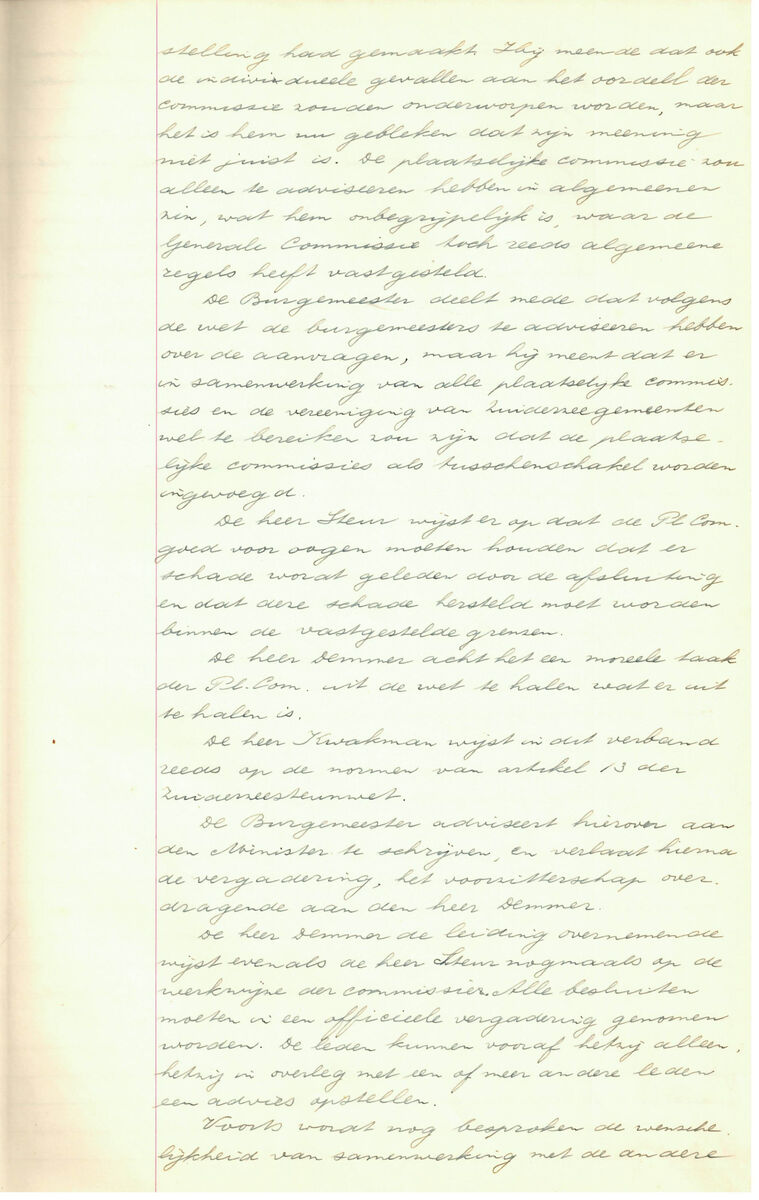 stelling had gemaakt. Hij meende dat ook
de individueele gevallen aan het oordell der
commissie zouden onderworpen worden, maar
het is hem nu gebleken dat zijn meening
niet juist is. De plaatselijke commissie zou
alleen te adviseeren hebben in algemeenen
zin, wat hem onbegrijpelijk is, waar de
Generale Commissie toch reeds algemeene
regels heeft vastgesteld.
De Burgemeester deelt mede dat volgens
de wet de burgemeesters te adviseeren hebben
over de aanvragen, maar hij meent dat er
in samenwerking van alle plaatselijke commis-
sies en de vereeniging van Zuiderzeegemeenten
wel te bereiken zou zijn dat de plaatse-
lijke commissies als tusschenschakel worden
ingevoegd.
De heer Steur wijst er op dat de Pl. Com.
goed voor oogen moeten houden dat er
schade wordt geleden door de afsluiting
en dat deze schade hersteld moet worden
binnen de vastgestelde grenzen.
De heer Demmer acht het een moreele taak
der Pl. Com. uit de wet te halen wat er uit
te halen is.
De heer Kwakman wijst in dit verband
reeds op de normen van artikel 13 der
Zuiderzeesteunwet.
De Burgemeester adviseert hierover aan
den Minister te schrijven, en verlaat hierna
de vergadering, het voorzitterschap over-
dragende aan den heer Demmer.
De heer Demmer de leiding overnemende
wijst evenals de heer Steur nogmaals op de
werkwijze der commissies. Alle besluiten
moeten in een officieele vergadering genomen
worden. De leden kunnen vooraf hetzij alleen,
hetzij in overleg met een of meer andere leden
een advies opstellen.
Voorts wordt nog besproken de wensche-
lijkheid van samenwerking met de andere